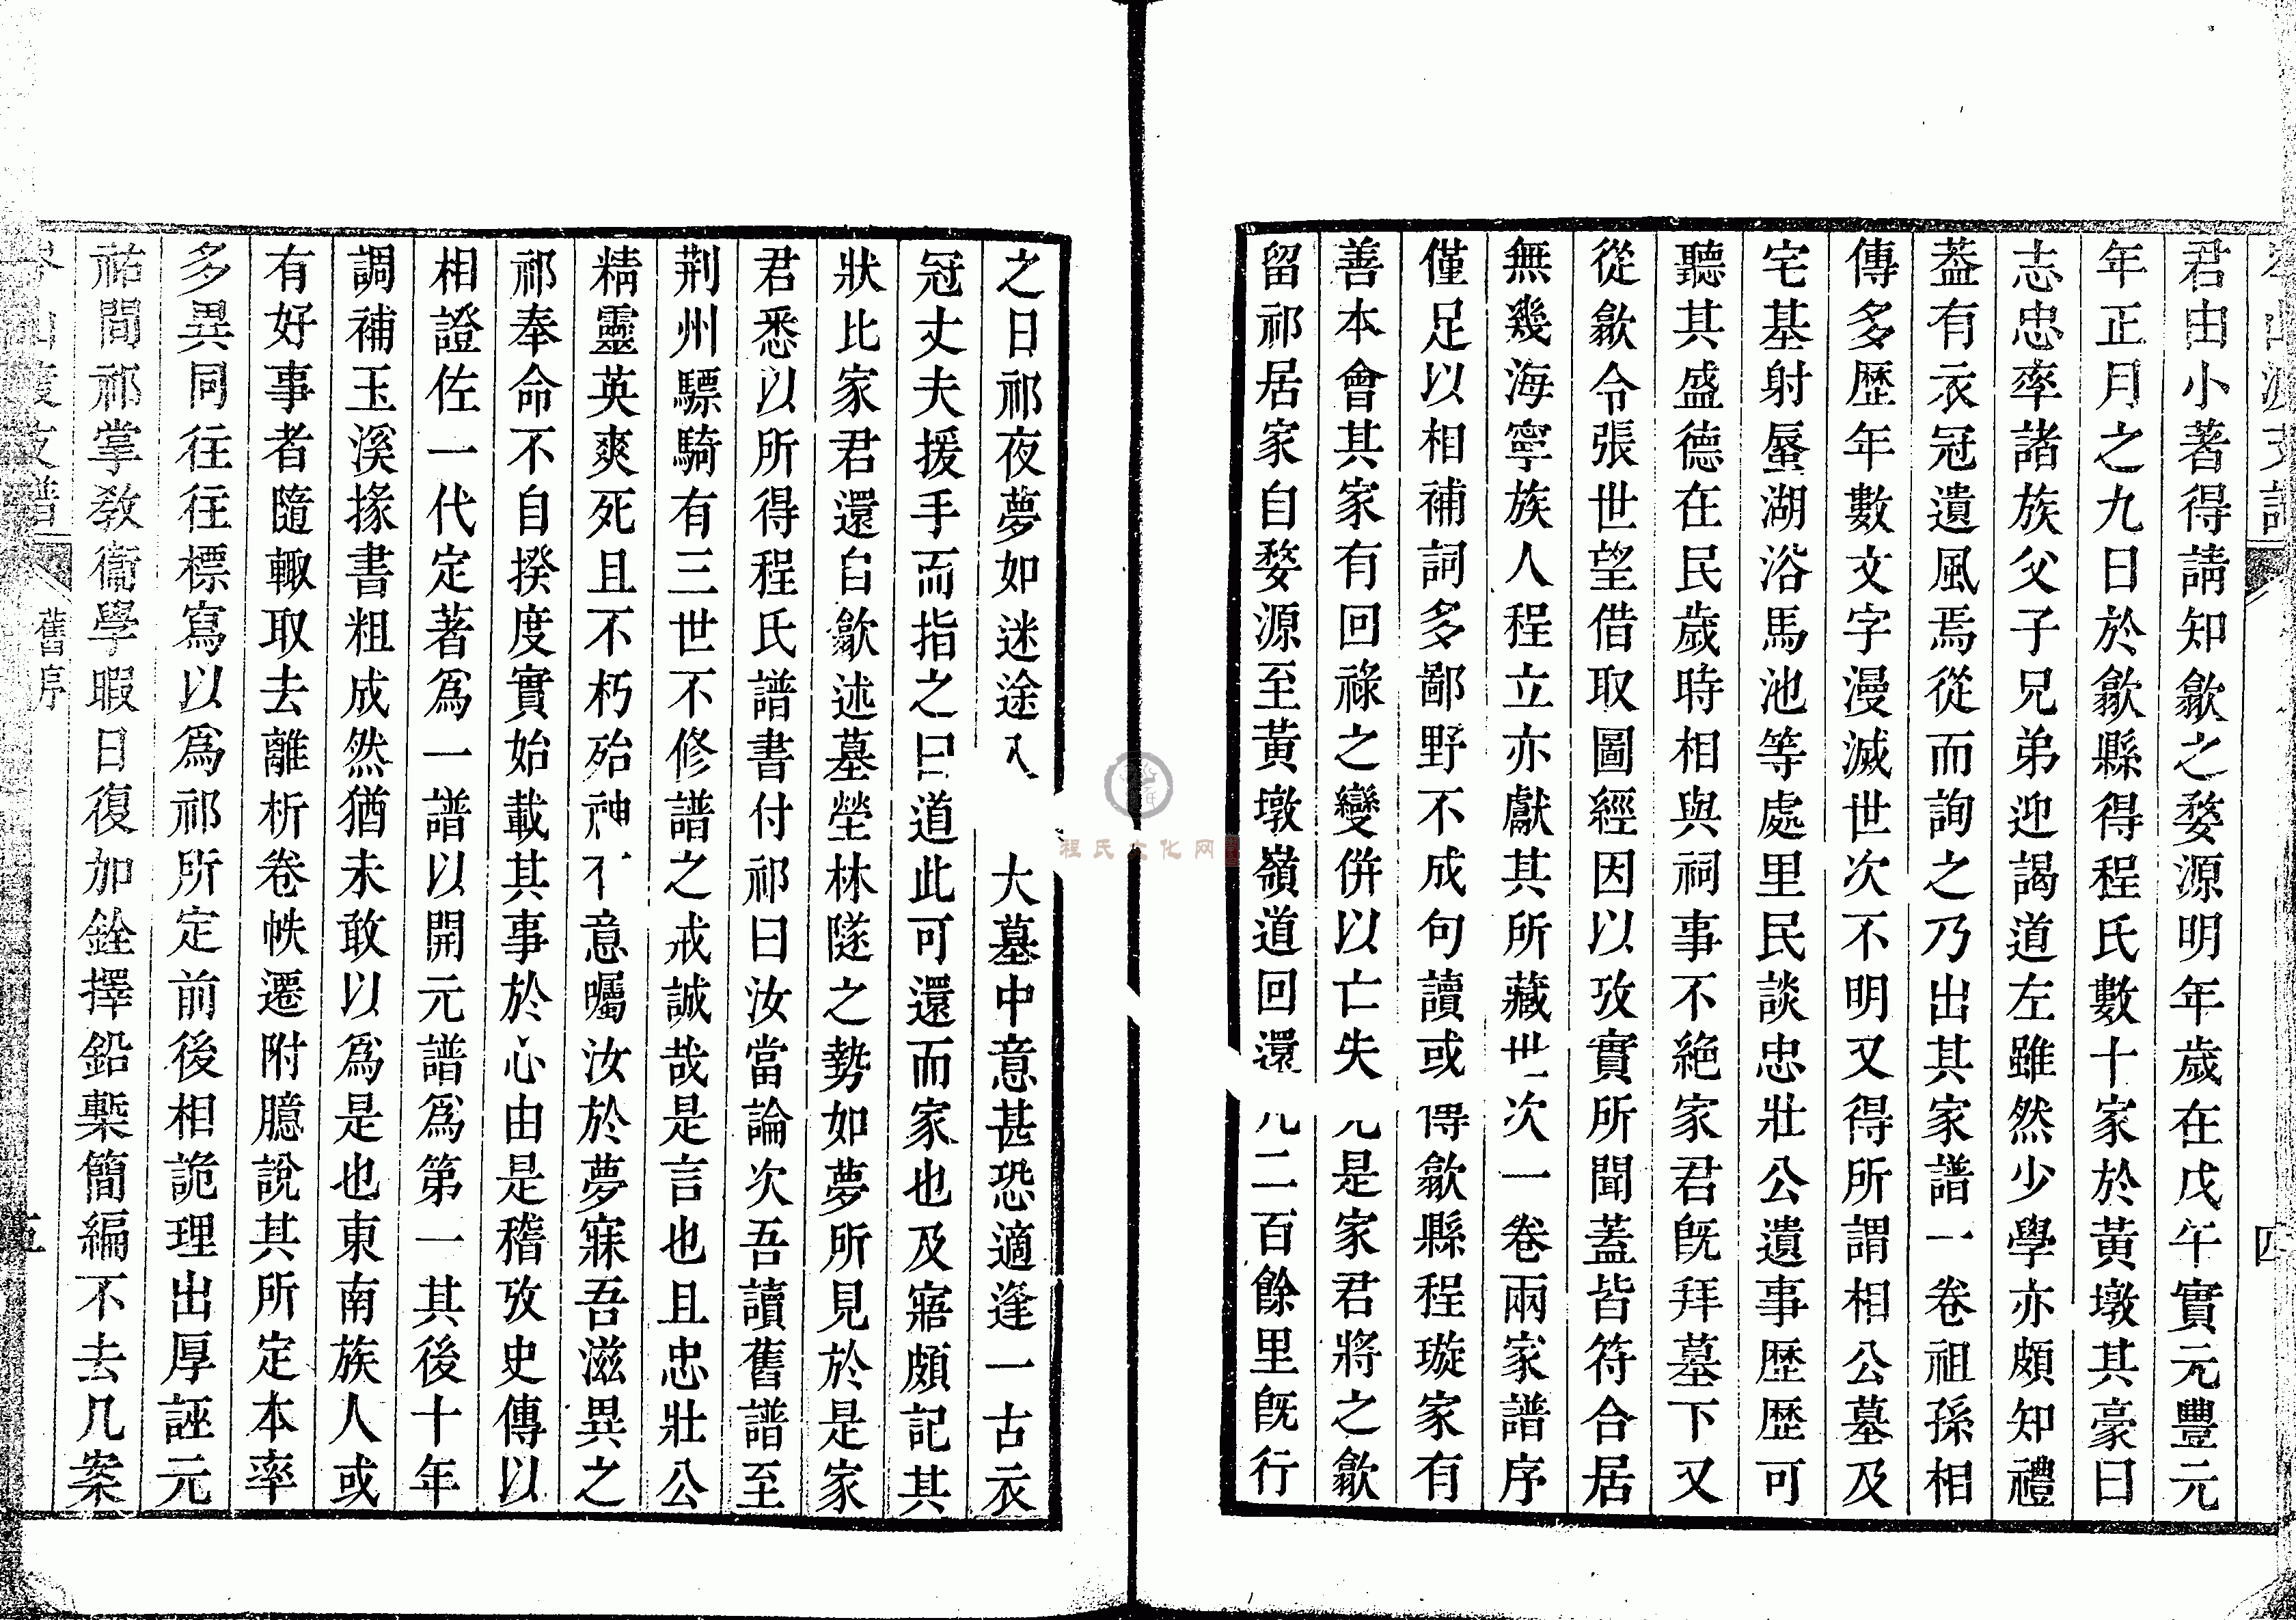 君由小著得請知歙之婺源明年歲在戊午實元豐元
年正月之九日於歙縣得程氏數十家於黃墩其豪曰
志忠率諸族父子兄弟迎謁道左雖然少學亦頗知禮
葢有衣冠遺風焉從而詢之乃出其家譜一卷祖孫相
傳多歷年數文字漫滅世次不明又得所謂相公墓及
宅基射蜃湖浴馬池等處里民談忠壯公遺事歷歷可
聽其盛德在民歲時相與祠事不絶家君旣拜墓下又
從歙令張世望借取圖經因以攷實所聞蓋皆符合居
無幾海寧族人程立亦獻其所藏世次一卷兩家譜序
僅足以相補詞多鄙野不成句讀或傳歙縣程璇家有
善本會其家有回祿之變併以亡失先是家君將之歙
留祁居家自婺源至黃墩嶺道回還凡二百餘里旣行
四
之日祁夜夢如迷途入大墓中意甚恐適逢一古衣
冠丈夫援手而指之曰道此可還而家也及寤頗記其
狀比家君還自歙述墓塋林隧之勢如夢所見於是家
君悉以所得程氏譜書付祁曰汝當論次吾讀舊譜至
荆州驃騎有三世不修譜之戒誠哉是言也且忠壯公
精靈英爽死且不朽殆神不意囑汝於夢寐吾滋異之
祁奉命不自揆度實始載其事於心由是稽攷史傳以
相證佐一代定著爲一譜以開元譜爲第一其後十年
調補玉溪掾書粗成然猶未敢以爲是也東南族人或
有好事者隨輙取去離析卷帙遷附臆說其所定本率
多異同往往標寫以爲祁所定前後相詭理出厚誣元
祐間祁掌敎衞學暇日復加銓擇鉛槧簡編不去几案
舊序
五
程氏文化网